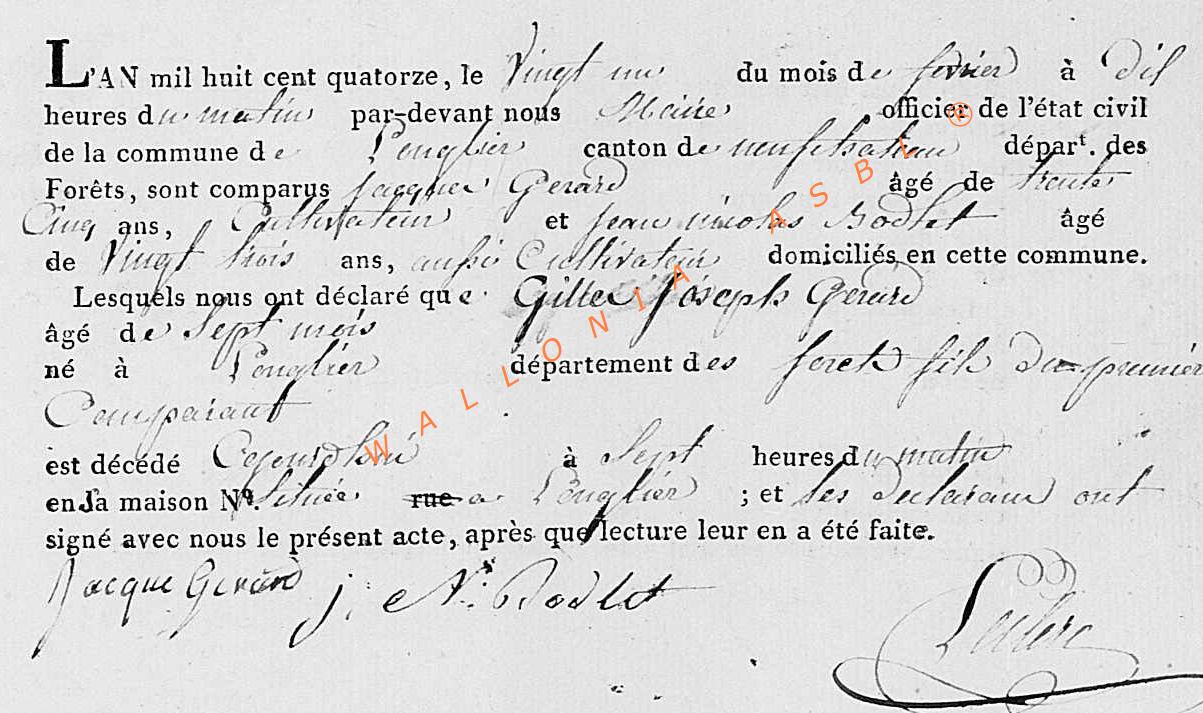 L'AN mil huit cent quatorze, le Vingt un du mois de fevrier à dix
heures du matin par-devant nous Maire officier de l'état civil
de la commune de Longlier canton de neufchateau départ. des
Forêts, sont comparus Jacques Gerard âgé de trente
Cinq ans, Cultivateur et jean nicolas Bodlet âgé
de Vingt trois ans, aussi Cultivateur domiciliés en cette commune.
Lesquels nous ont déclaré que Gille joseph Gerard
âgé de Sept mois
né à Longlier département des foret fils du premier
Comparant
est décédé à Sept heures du matin
en sa maison No. Située rue a Longlier ; et les declarans ont
signé avec nous le présent acte, après que lecture leur en a été faite.
Jacque Gerard j. N. Bodlet Leclerc
WALLONIA ASBL ®